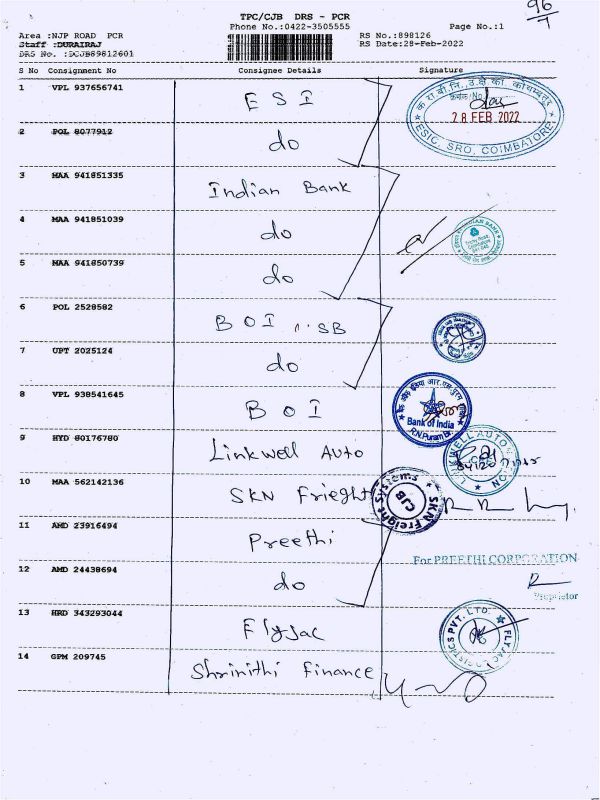 96/7
TPC/CJB DRS - PCR
Phone No.:0422-3505555 Page No.:1
Area :NJP ROAD PCR RS No.:898126
Staff :DURAIRAJ RS Date:28-Feb-2022
DRS No. :DCJB89812601
S No Consignment No Consignee Details Signature
1 VPL 937656741 ESI
क्रमांक/No
28 FEB 2022
ESIC, SRO, COIMBATORE
2 POL 8077912 do
3 MAA 941851335 Indian Bank
4 MAA 941851039 do
INDIAN BANK
Trichy Road,
Coimbatore
5 MAA 941850739 do
6 POL 2528582 BOI SB
7 UPT 2025124 do
8 VPL 938541645 BOI
Bank of India
R.N.Puram Br.
9 HYD 80176780 Linkwell Auto
LINKWELL AUTOMATION
CBE
10 MAA 562142136 SKN Frieght
SKN Freight Systems
CJB
11 AMD 23916494 Preethi
For PREETHI CORPORATION
12 AMD 24438694 do
Proprietor
13 HRD 343293044 Flyjac
FLYJAC LOGISTICS PVT. LTD.
14 GPM 209745 Shrinithi Finance